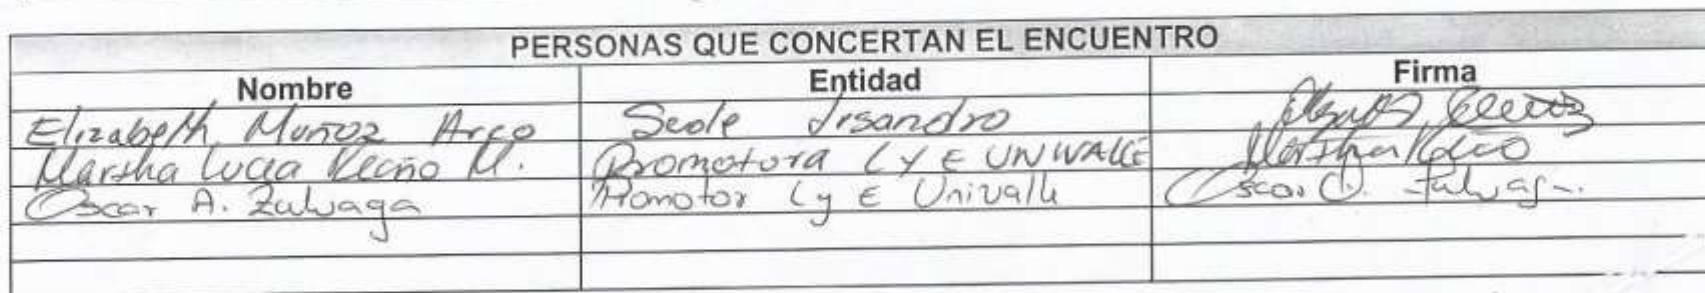 PERSONAS QUE CONCERTAN EL ENCUENTRO
Nombre Entidad Firma
Elizabeth Muñoz Arco Sede Lisandro
Marsha Lucia M. Promotora L y E UNIVALLE Martha
Oscar A. Zuluaga Promotor L y E Univalle Oscar